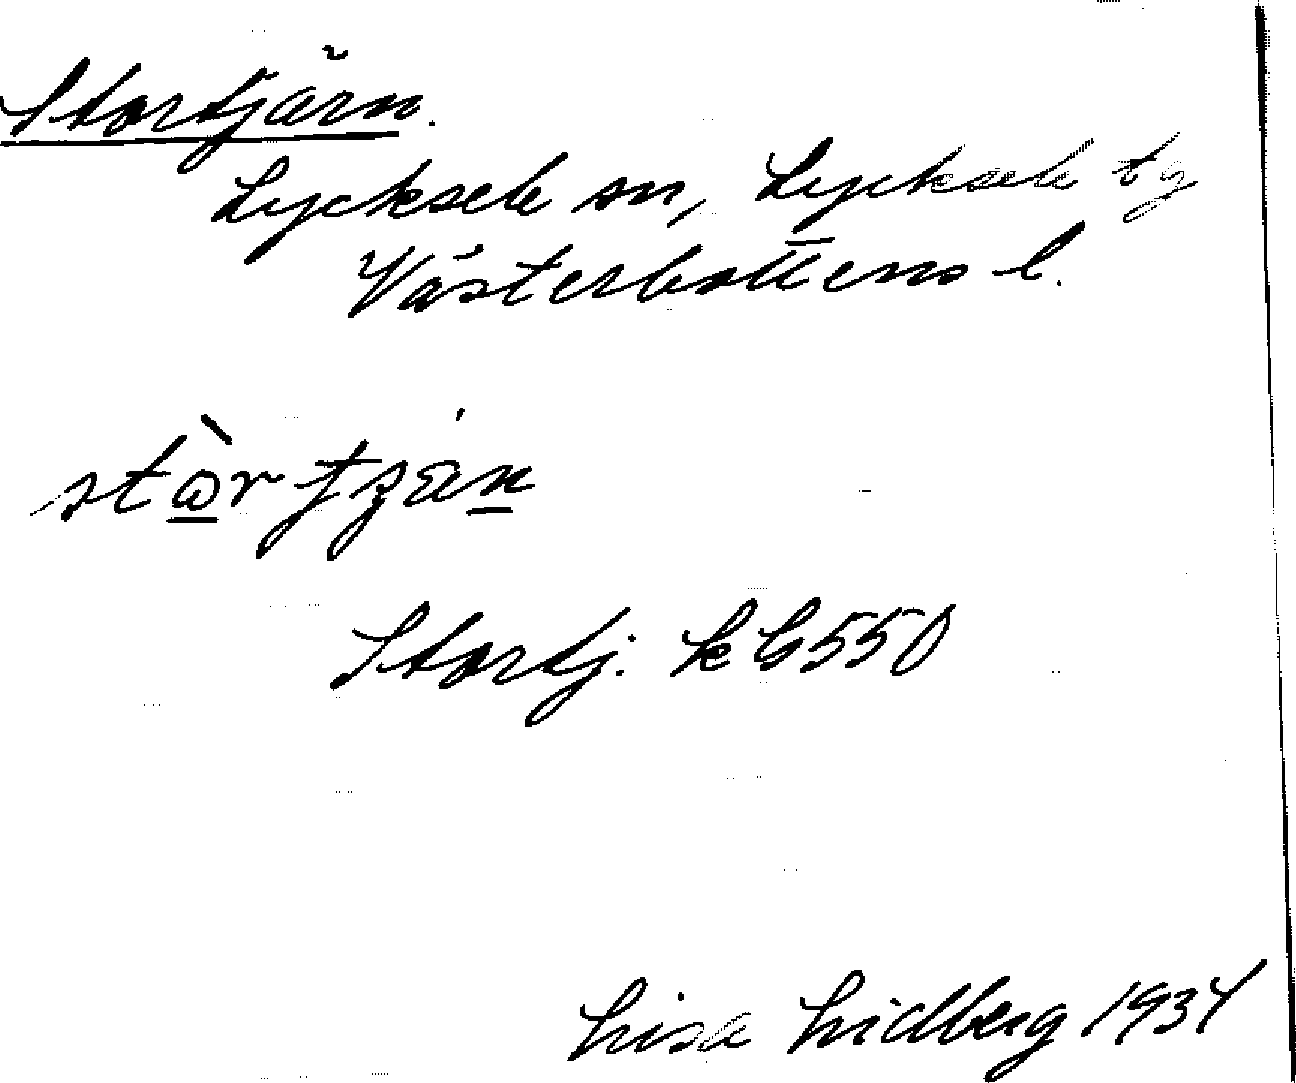 Stortjärn.
Lycksele sn, Lycksele tg
Västerbottens l.
Stortj. k G550
Lisa Lidberg 1934